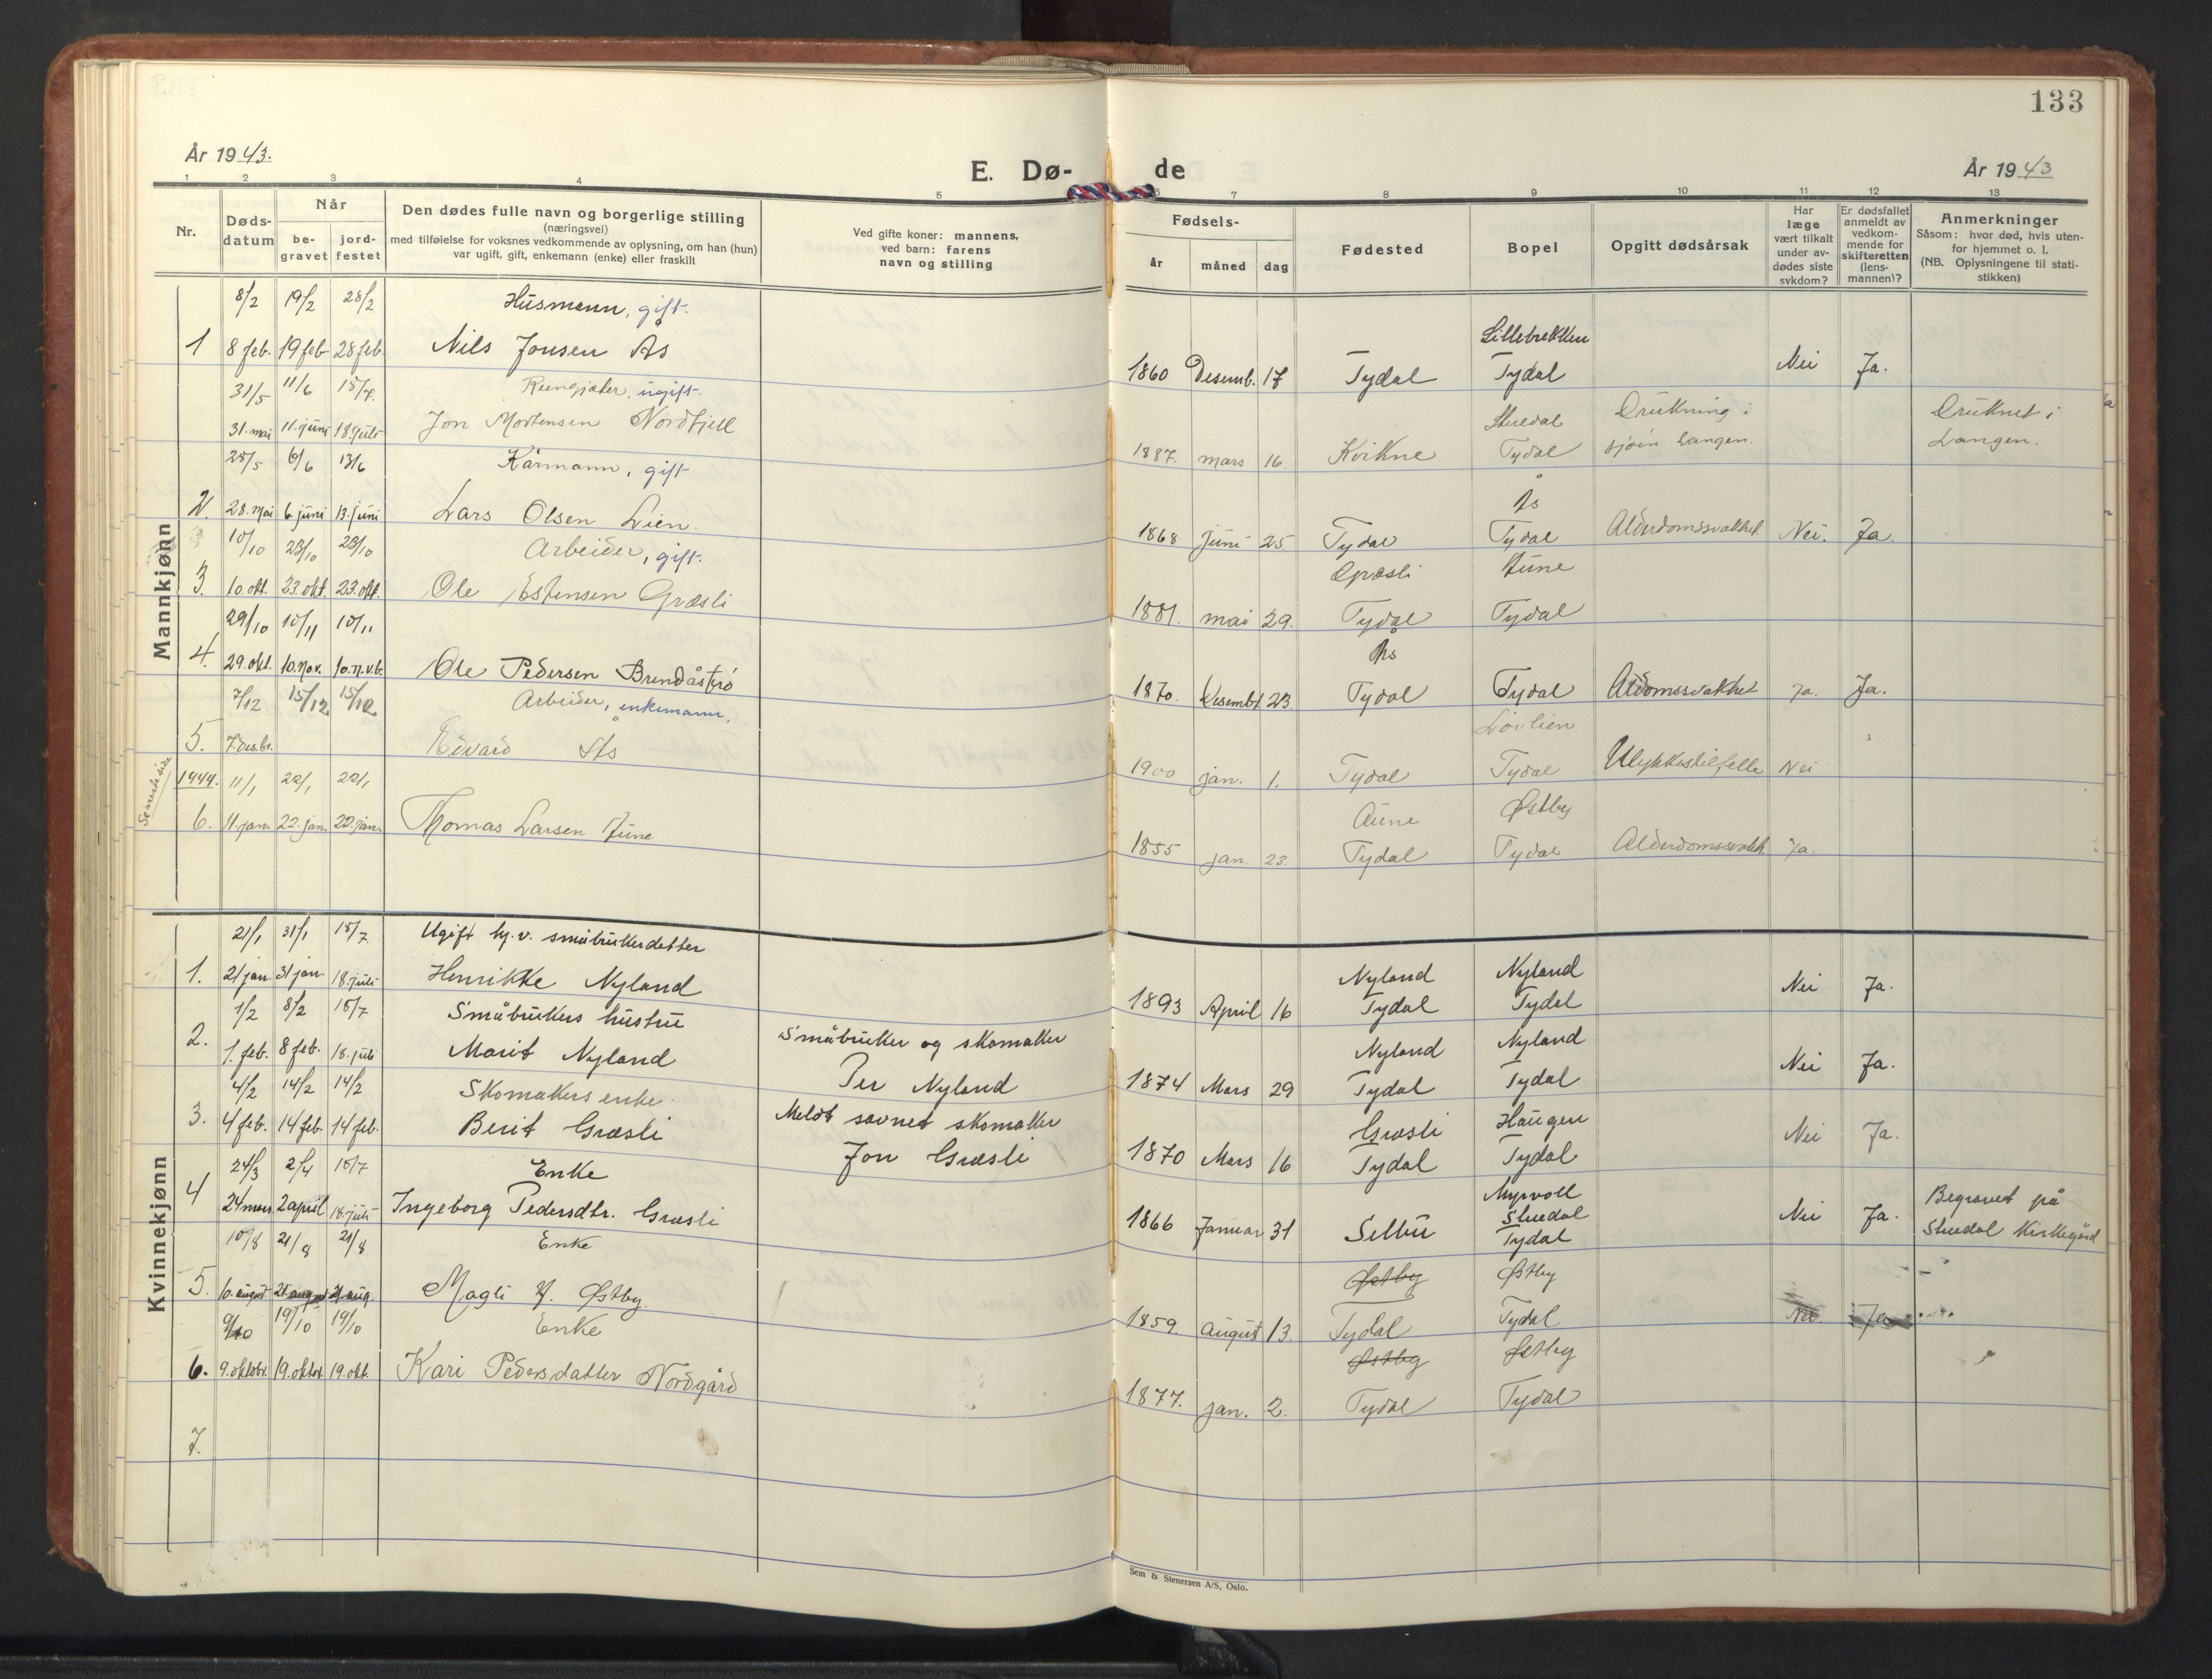 133
År 1943.
E. Dø-
de
År 1943
1 2 3 4 5 6 7 8 9 10 11 12 13
Nr.
Døds-
datum
Når
be-
gravet
jord-
festet
Den dødes fulle navn og borgerlige stilling
(næringsvei)
med tilføielse for voksnes vedkommende av oplysning, om han (hun)
var ugift, gift, enkemann (enke) eller fraskilt
Ved gifte koner: mannens,
ved barn: farens
navn og stilling
Fødsels-
år
måned
dag
Fødested
Bopel
Opgitt dødsårsak
Har
læge
vært tilkalt
under av-
dødes siste
sykdom?
Er dødsfallet
anmeldt av
vedkom-
mende for
skifteretten
(lens-
mannen)?
Anmerkninger
Såsom: hvor død, hvis uten-
for hjemmet o. l.
(NB. Oplysningene til stati-
stikken)
Mannkjønn
8/2 19/2 28/2 Husmann, gift.
Lillebrekken
1 8 feb. 19 feb. 28 feb. Nils Jonsen Ås 1860 Desemb. 17 Tydal Tydal Nei Ja.
31/5 11/6 18/7. ugift.
Stuedal Drukning i Druknet i
31. mai 11. juni 18. juli Jon Mortensen Nordfjell 1887. mars 16. Kvikne Tydal sjøen Langen. Langen.
28/5 6/6 13/6 Kårmann, gift
Ås
2. 28. mai 6. juni 13. juni Lars Olsen Lien. 1868 juni 25. Tydal Tydal Alderdomssvakhet. Nei. Ja.
10/10 23/10 23/10 Arbeider, gift.
Græsli Aune
3. 10. okt. 23. okt. 23. okt. Ole Estensen Græsli 1881. mai 29. Tydal Tydal
29/10 10/11 10/11
Ås
4. 29. okt. 10. nov. 10. n.v.b. Ole Pedersen Brendåstrø 1870. Desembr. 23. Tydal Tydal Aldomssvakhet Ja. Ja.
7/12 15/12 15/12 Arbeider, enkemann.
Løvlien
5. 7. des.br. Edvard Ås 1900 jan. 1. Tydal Tydal Ulykkestilfelle Nei
Seneste side
1944. 11/1 22/1 22/1
Aune Østby
6. 11. jan. 22. jan. 22. jan. Thomas Larsen Aune 1855 jan. 23. Tydal Tydal Alderdomssvakh. Ja.
Kvinnekjønn
21/1 31/1 18/7 Ugift hj.v. småbrukerdatter
Nyland Nyland
1. 21 jan. 31 jan. 18. juli Henrikke Nyland 1893 April 16 Tydal Tydal Nei Ja.
1/2 8/2 18/7 Småbrukers hustru Småbruker og skomaker
Nyland Nyland
2. 1. feb. 8 feb. 18. juli Marit Nyland Per Nyland 1874 Mars 29 Tydal Tydal Nei Ja.
4/2 14/2 14/2 Skomakers enke. Meldt savnet skomaker
Græsli Haugen
3. 4 feb. 14 feb. 14 feb. Berit Græsli Jon Græsli 1870 Mars 16 Tydal Tydal Nei Ja.
24/3 2/4 18/7 Enke
Myrvoll Begravet på
4 24 mars 2 april 18. juli Ingeborg Pedersdtr. Græsli 1866 Januar 31 Selbu Stuedal Nei Ja. Stuedal Kirkegård
Tydal
10/8 21/8 21/8 Enke
Østby Østby
5. 10. august 21. august 21 aug. Magli N. Østby. 1859. august 13. Tydal Tydal Nei. Ja
9/10 19/10 19/10 Enke
Østby Østby
6. 9. oktobr. 19. oktbr. 19. okt. Kari Pedersdatter Nordgård 1877. jan. 2. Tydal Tydal
7.
Sem & Stenersen A/S, Oslo.